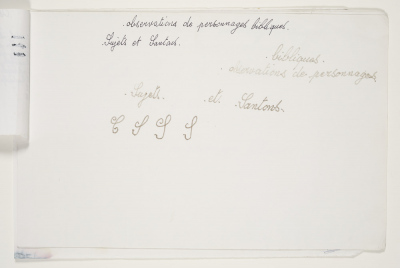 .observations de personnages bibliques.
Sujets et Santons.
. bibliques.
. observations de personnages.
. Sujets. et Santons.
S S S